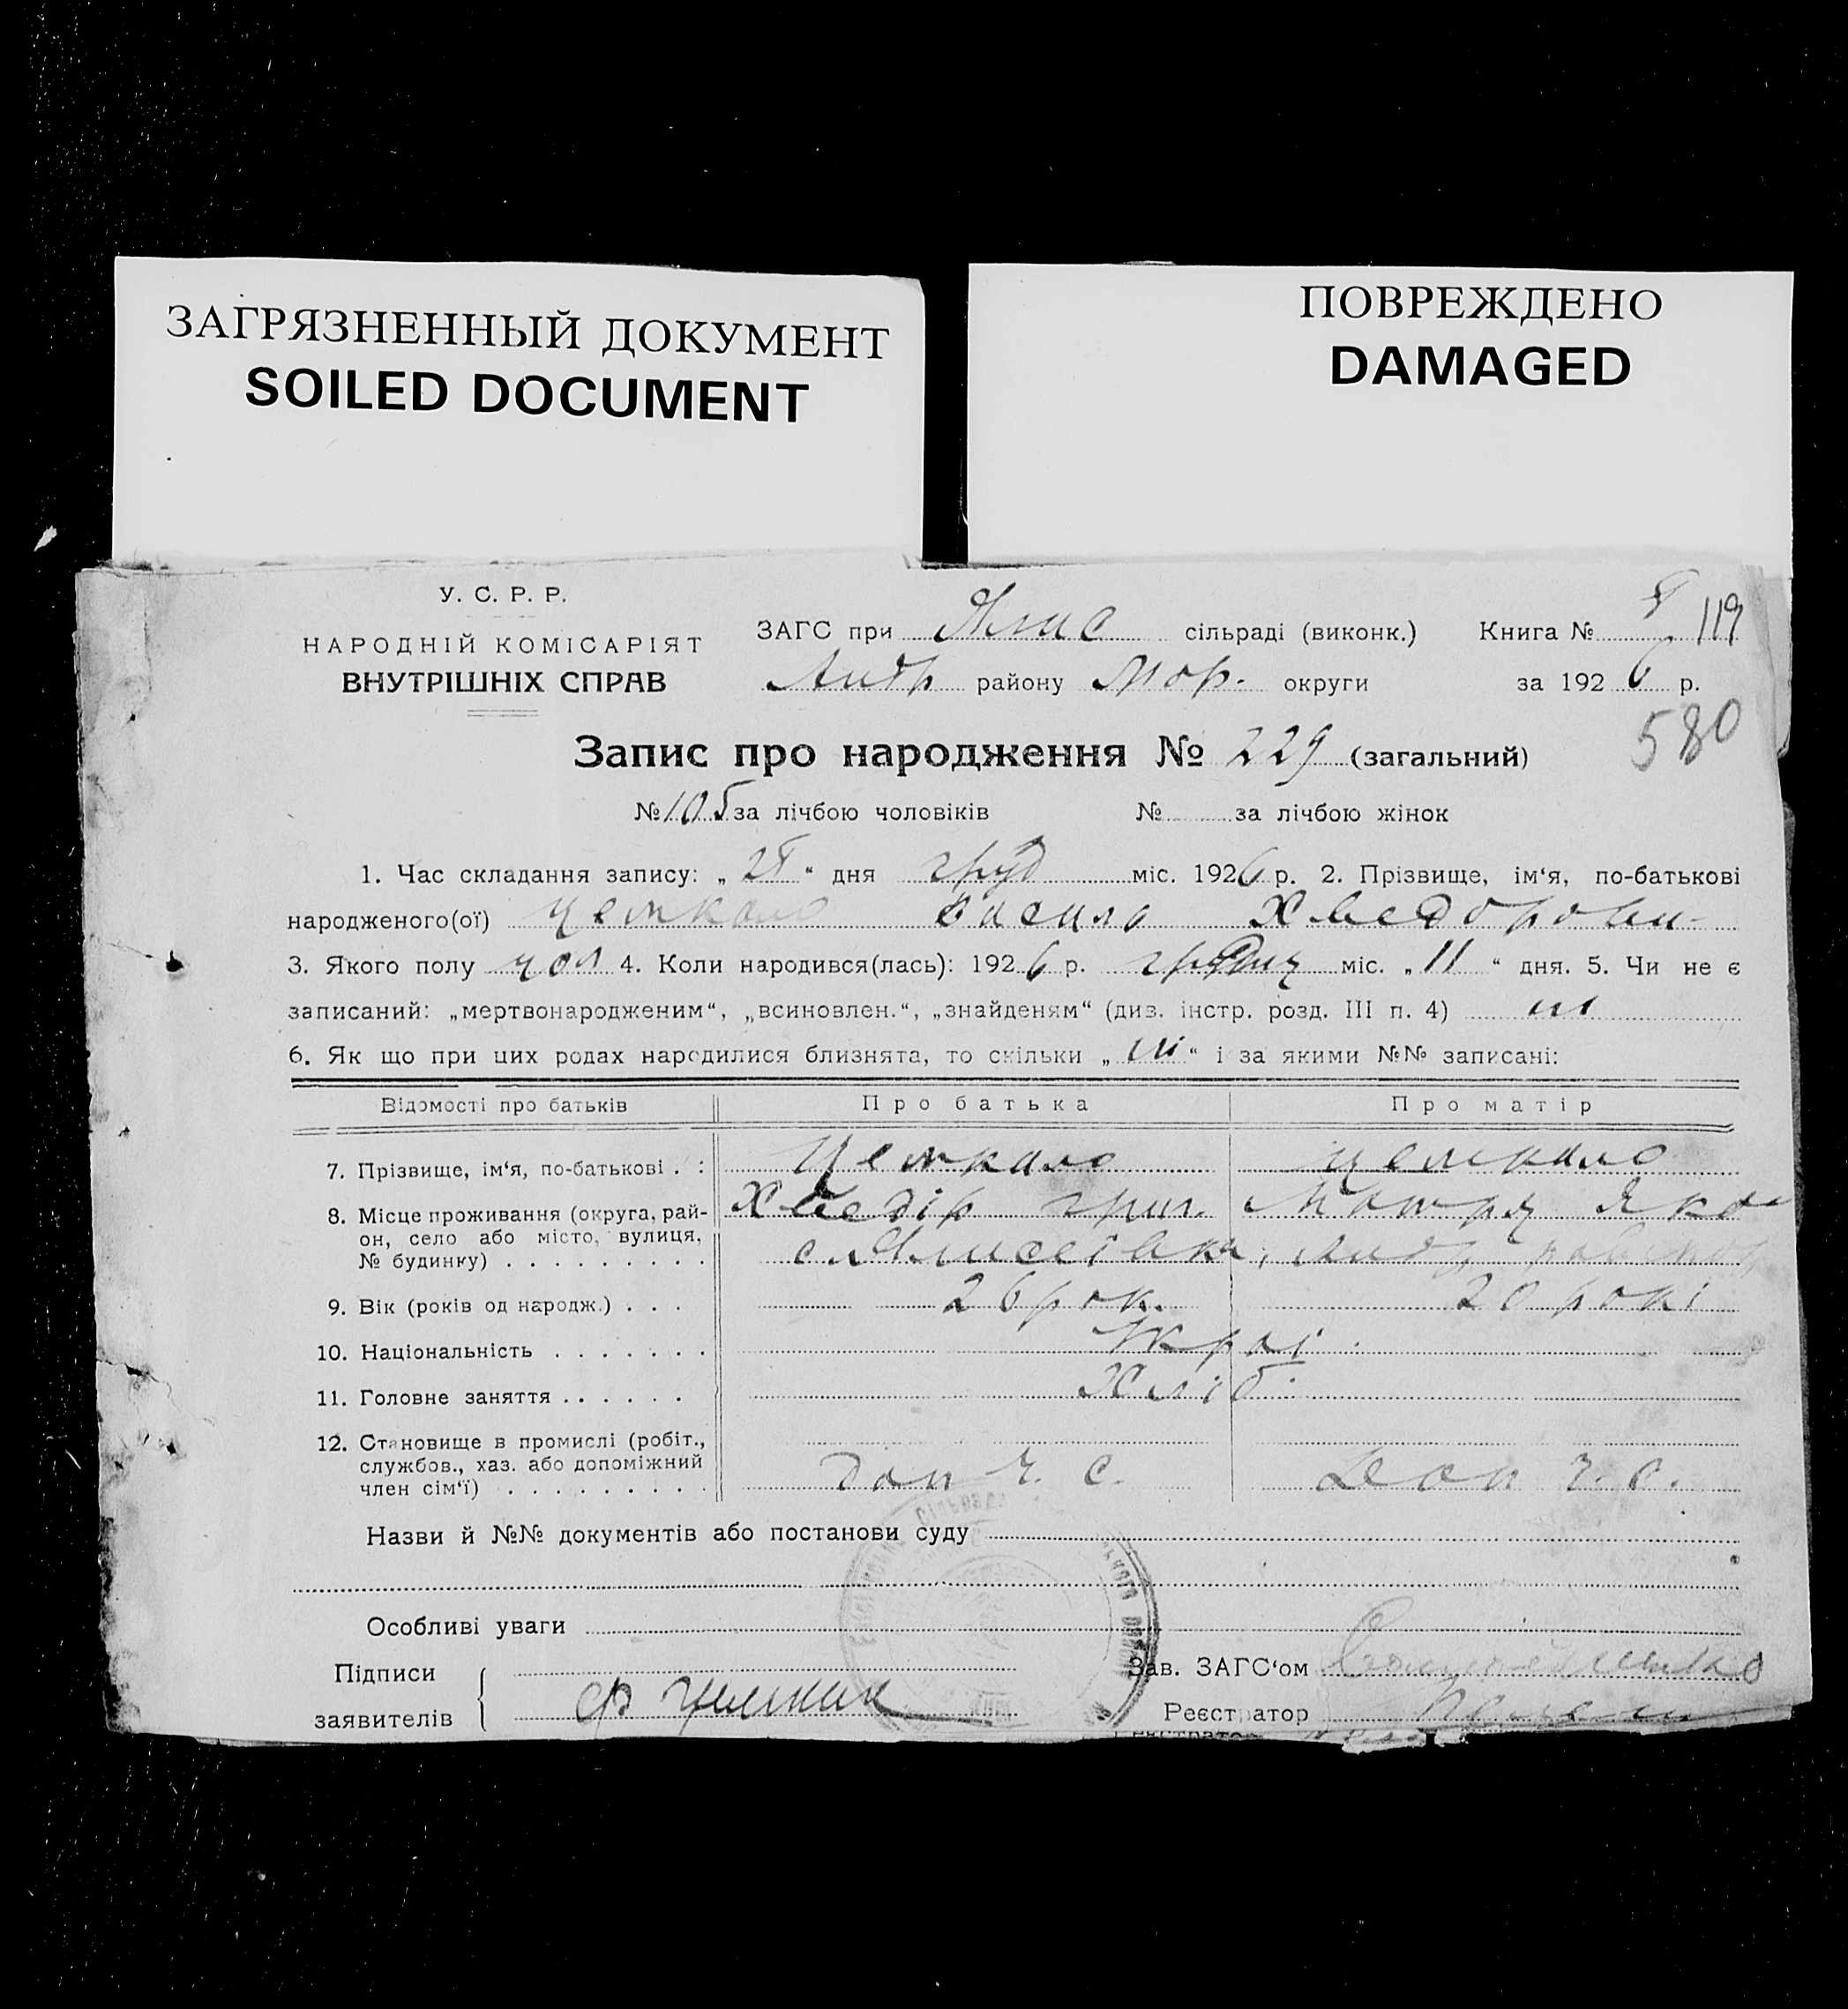 ЗАГРЯЗНЕННЫЙ ДОКУМЕНТ
SOILED DOCUMENT
ПОВРЕЖДЕНО
DAMAGED
У. С. Р. Р.
НАРОДНІЙ КОМІСАРІЯТ
ВНУТРІШНІХ СПРАВ
ЗАГС при Ялис сільраді (виконк.) Книга № 119
Андр району Мор. округи за 1926 р.
580
Запис про народження № 229 (загальний)
№ 105 за лічбою чоловіків № за лічбою жінок
1. Час складання запису: „ “ дня груд міс. 1926 р. 2. Прізвище, ім‘я, по-батькові
народженого(ої) Цемкало Василь Хведорови-
3. Якого полу чол 4. Коли народився(лась): 1926 р. грудня міс. „11“ дня. 5. Чи не є
записаний: „мертвонародженим“, „всиновлен.“, „знайденям“ (див. інстр. розд. III п. 4) ні
6. Як що при цих родах народилися близнята, то скільки „ні“ і за якими №№ записані:
Відомості про батьків Про батька Про матір
7. Прізвище, ім‘я, по-батькові . : Цемкало Цемкало
Хведір Григ. Мотря Яко
8. Місце проживання (округа, рай-
он, село або місто, вулиця,
№ будинку) . . . . . . . . . с. Ялисеївка, Андр. рай
9. Вік (років од народж.) . . . 26 рок. 20 рокі
10. Національність . . . . . . . Украї.
11. Головне заняття . . . . . . Хліб.
12. Становище в промислі (робіт.,
службов., хаз. або допоміжний
член сім‘ї) . . . . . . . . . Доп ч. с. Доп ч. с.
Назви й №№ документів або постанови суду
Особливі уваги
Підписи
заявителів
Зав. ЗАГС‘ом
Реєстратор